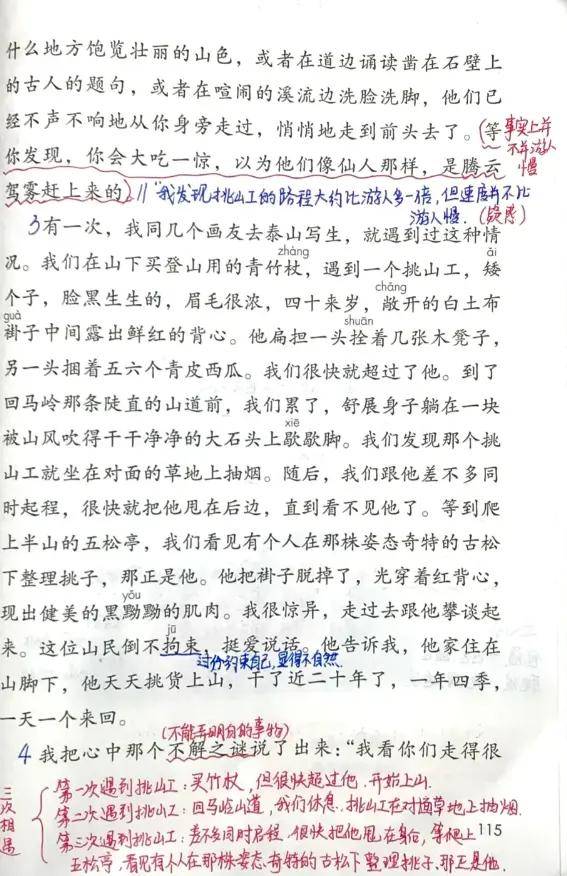 什么地方饱览壮丽的山色，或者在道边诵读凿在石壁上
的古人的题句，或者在喧闹的溪流边洗脸洗脚，他们已
经不声不响地从你身旁走过，悄悄地走到前头去了。(等
事实上并
不并游人
慢
你发现，你会大吃一惊，以为他们像仙人那样，是腾云
驾雾赶上来的)
"我发现挑山工的路程大约比游人多一倍，但速度并不比
游人慢. (疑惑)
3有一次，我同几个画友去泰山写生，就遇到过这种情
zhàng ǎi
况。我们在山下买登山用的青竹杖，遇到一个挑山工，矮
chǎng
个子，脸黑生生的，眉毛很浓，四十来岁，敞开的白土布
guà shuān
褂子中间露出鲜红的背心。他扁担一头拴着几张木凳子，
另一头捆着五六个青皮西瓜。我们很快就超过了他。到了
回马岭那条陡直的山道前，我们累了，舒展身子躺在一块
xiē
被山风吹得干干净净的大石头上歇歇脚。我们发现那个挑
山工就坐在对面的草地上抽烟。随后，我们跟他差不多同
时起程，很快就把他甩在后边，直到看不见他了。等到爬
上半山的五松亭，我们看见有个人在那株姿态奇特的古松
下整理挑子，那正是他。他把褂子脱掉了，光穿着红背心，
yǒu
现出健美的黑黝黝的肌肉。我很惊异，走过去跟他攀谈起
jū
来。这位山民倒不拘束，挺爱说话。他告诉我，他家住在
过份约束自己，显得不自然.
山脚下，他天天挑货上山，干了近二十年了，一年四季，
一天一个来回。
(不能弄明白的事物)
4 我把心中那个不解之谜说了出来："我看你们走得很
三次相遇
第一次遇到挑山工：买竹杖，但很快超过他.开始上山.
第二次遇到挑山工：回马岭山道，我们休息.挑山工在对面草地上抽烟.
第三次遇到挑山工：差不多同时启程，很快把他甩在身后，等爬上
五松亭，看见有个人在那株姿态奇特的古松下整理挑子，那正是他.
115